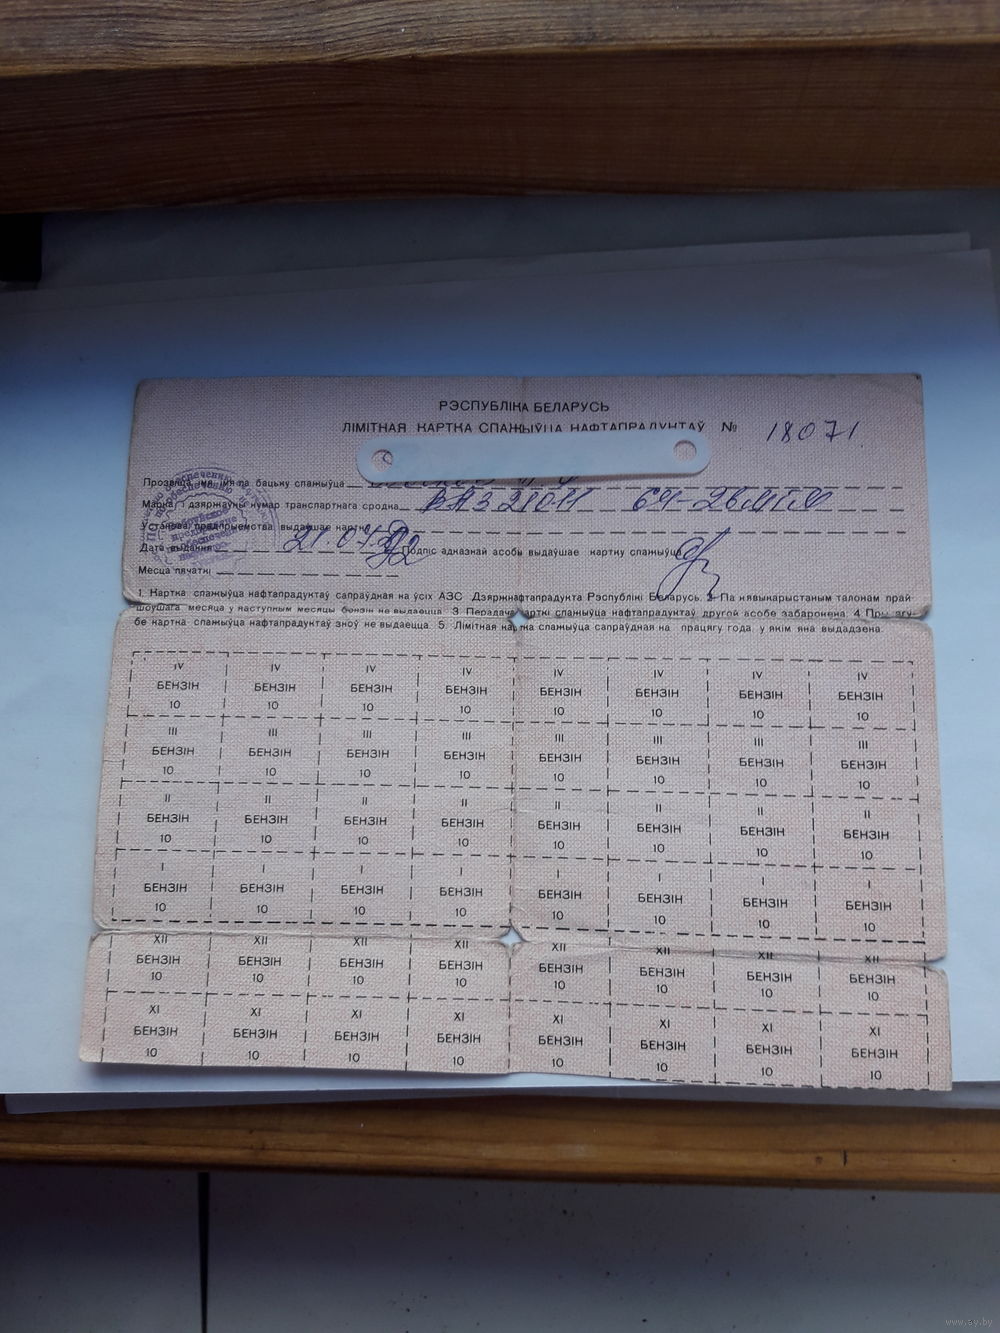 РЭСПУБЛІКА БЕЛАРУСЬ
ЛІМІТНАЯ КАРТКА СПАЖЫЎЦА НАФТАПРАДУКТАЎ № 18071
Прозвішча, імя, імя па бацьку спажыўца
Марка і дзяржаўны нумар транспартнага сродка ВАЗ 21011
Установа, прадпрыемства выдаўшае картку
Дата выдання 21.07.92 Подпіс адказнай асобы выдаўшае картку спажыўца
Месца пячаткі
1. Картка спажыўца нафтапрадуктаў сапраўдная на ўсіх АЗС Дзяржнафтапрадукта Рэспублікі Беларусь. 2. Па нявыкарыстаным талонам прай-
шоўшага месяца у наступным месяцы бензін не выдаецца. 3. Перадача карткі спажыўца нафтапрадуктаў другой асобе забаронена. 4. Пры згу-
бе картка спажыўца нафтапрадуктаў зноў не выдаецца. 5. Лімітная картка спажыўца сапраўдная на працягу года, у якім яна выдадзена.
IV IV IV IV IV IV IV IV
БЕНЗІН БЕНЗІН БЕНЗІН БЕНЗІН БЕНЗІН БЕНЗІН БЕНЗІН БЕНЗІН
10 10 10 10 10 10 10 10
III III III III III III III III
БЕНЗІН БЕНЗІН БЕНЗІН БЕНЗІН БЕНЗІН БЕНЗІН БЕНЗІН БЕНЗІН
10 10 10 10 10 10 10 10
II II II II II II II II
БЕНЗІН БЕНЗІН БЕНЗІН БЕНЗІН БЕНЗІН БЕНЗІН БЕНЗІН БЕНЗІН
10 10 10 10 10 10 10 10
I I I I I I I I
БЕНЗІН БЕНЗІН БЕНЗІН БЕНЗІН БЕНЗІН БЕНЗІН БЕНЗІН БЕНЗІН
10 10 10 10 10 10 10 10
XII XII XII XII XII XII XII XII
БЕНЗІН БЕНЗІН БЕНЗІН БЕНЗІН БЕНЗІН БЕНЗІН БЕНЗІН БЕНЗІН
10 10 10 10 10 10 10 10
XI XI XI XI XI XI XI XI
БЕНЗІН БЕНЗІН БЕНЗІН БЕНЗІН БЕНЗІН БЕНЗІН БЕНЗІН БЕНЗІН
10 10 10 10 10 10 10 10
www.ay.by